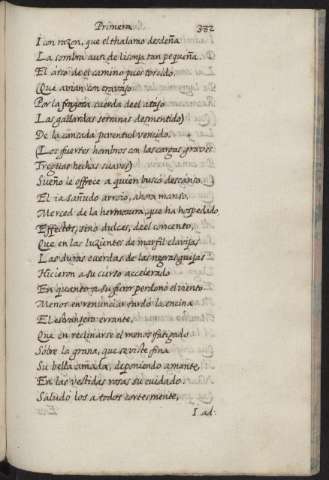 Primera 332
I con razon, que el thalamo desdeña
La sombra aun de lisonja tan pequeña
El arco del camino pues torcido,
(Que avian con trabajo
Por la fragosa cuerda de el atajo
Las gallardas serranas desmentido)
De la cansada juventud vencido.
(Los fuertes hombros con las cargas graves
Treguas hechas suaves)
Sueño le offrece a quien busco descanso
El ia sañudo arroio, ahora manso.
Merced de la hermosura, que ha hospedado
Effectos, sino dulces, de el concento,
Que en las luzientes de marfil clavijas
Las duras cuerdas de las negras guijas
Hicieron a su curso accelerado
En quanto a su furor perdono el viento.
Menos en renunciar tardo la encina
El estranjero errante,
Que en reclinarse el menos fatigado
Sobre la grana, que se viste fina
Su bella amada, deponiendo amante,
En las vestidas rosas su cuidado.
Saludo los a todos cortesmente,
I ad.